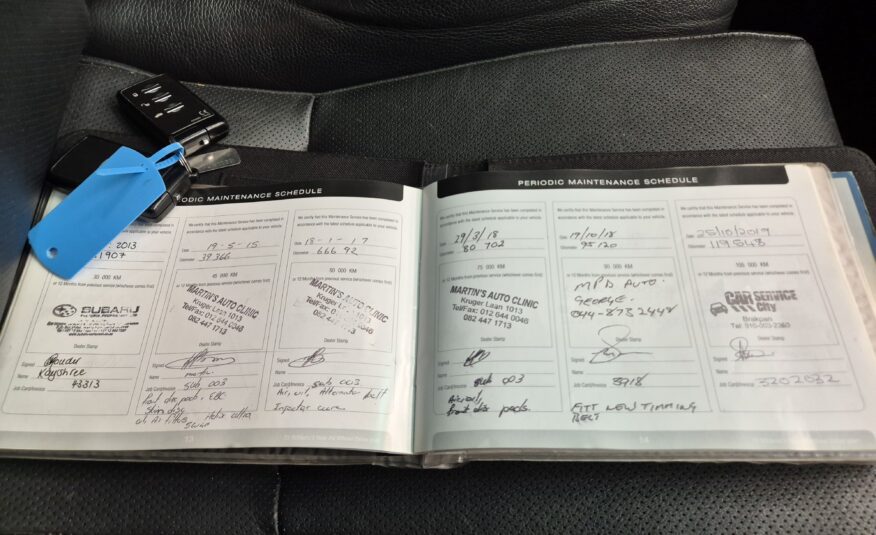 ODIC MAINTENANCE SCHEDULE
We certify that this Maintenance Service has been completed in
accordance with the latest schedule applicable to your vehicle.
2013
1907
30 000 KM
or 12 Months from previous service (whichever comes first)
SUBARU
Dealer Stamp
Signed
Name Kayshree
Job Card/Invoice 43313
We certify that this Maintenance Service has been completed in
accordance with the latest schedule applicable to your vehicle.
Date 19-5-15
Odometer 39366
45 000 KM
or 12 Months from previous service (whichever comes first)
MARTIN'S AUTO CLINIC
Kruger Laan 1013
Tel/Fax: 012 644 0046
082 447 1713
Dealer Stamp
Signed
Name
Job Card/Invoice SUB 003
We certify that this Maintenance Service has been completed in
accordance with the latest schedule applicable to your vehicle.
Date 18-1-17
Odometer 666 92
60 000 KM
or 12 Months from previous service (whichever comes first)
MARTIN'S AUTO CLINIC
Kruger Laan 1013
Tel/Fax: 012 644 0046
082 447 1713
Dealer Stamp
Signed
Name
Job Card/Invoice Sub 003
Air, oil, Alternator belt
Injector
13
PERIODIC MAINTENANCE SCHEDULE
We certify that this Maintenance Service has been completed in
accordance with the latest schedule applicable to your vehicle.
Date 29/3/18
Odometer 80 702
75 000 KM
or 12 Months from previous service (whichever comes first)
MARTIN'S AUTO CLINIC
Kruger Laan 1013
Tel/Fax: 012 644 0046
082 447 1713
Dealer Stamp
Signed
Name
Job Card/Invoice Sub 003
Front disc pads
We certify that this Maintenance Service has been completed in
accordance with the latest schedule applicable to your vehicle.
Date 17/10/18
Odometer 95120
90 000 KM
or 12 Months from previous service (whichever comes first)
MPD AUTO.
GEORGE.
044-873 2448
Dealer Stamp
Signed
Name
Job Card/Invoice 8918
FITT NEW TIMMING
BELT
We certify that this Maintenance Service has been completed in
accordance with the latest schedule applicable to your vehicle.
Date 25/10/2019
Odometer 119548
105 000 KM
or 12 Months from previous service (whichever comes first)
CAR SERVICE
City
Brakpan
Dealer Stamp
Signed
Name
Job Card/Invoice 5202032
14